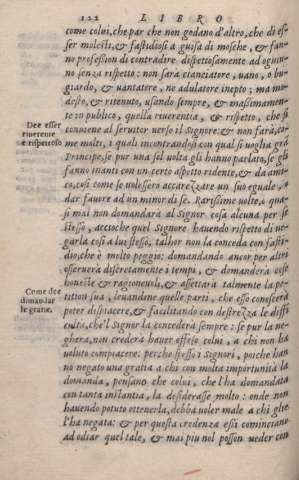 122 LIBRO
come colui, che par che non godano d'altro, che di es-
ser molesti, & fastidiosi a guisa di mosche, & fan-
no profession di contradire dispettosamente ad ogniu-
no senza rispetto: non sarà cianciatore, uano, o bu-
giardo, & uantatore, ne adulatore inepto; ma mo-
desto, & ritenuto, usando sempre, & massimamen-
te in publico, quella riuerentia, & rispetto, che si
Dee esser
riuerente
e rispettoso
conuiene al seruitor uerso il Signore: & non farà, co-
me molti, i quali incontrandosi con qual si uoglia grã
Principe, se pur una sol uolta gli hanno parlato, se gli
fanno inanti con un certo aspetto ridente, & da ami-
co, così come se uolessero accarezzare un suo eguale, o
dar fauore ad un minor di se. Rarissime uolte, o qua-
si mai non domandarà al Signor cosa alcuna per se
stesso, accioche quel Signore hauendo rispetto di ne-
garla così a lui stesso, talhor non la conceda con fasti-
dio, che è molto peggio: domandando ancor per altri
osseruerà discretamente i tempi, & domanderà cose
honeste & ragioneuoli, & assettarà talmente la pe-
Come dee
dimandar
le gratie.
tition sua, leuandone quelle parti, che esso conoscerà
poter dispiacere, & facilitando con destrezza le diffi
cultà, che'l Signor la concederà sempre: se pur la ne-
gherà, non crederà hauer offeso colui, a chi non hà
uoluto compiacere: perche spesso i Signori, poiche han
no negato una gratia a chi con molta importunità la
domanda, pensano che colui, che l'ha domandata
con tanta instantia, la desiderasse molto: onde non
hauendo potuto ottenerla, debba uoler male a chi glie
l'ha negata: & per questa credenza essi cominciano
ad odiar quel tale, & mai piu nol posson ueder con